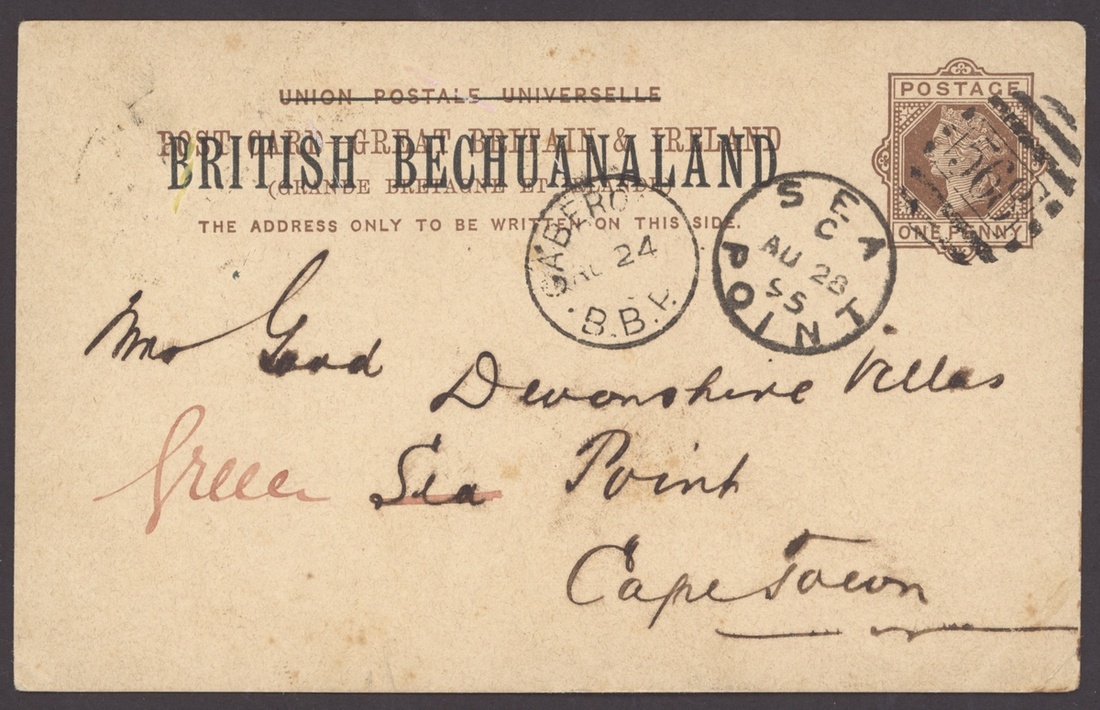 UNION POSTALE UNIVERSELLE
POST CARD - GREAT BRITAIN & IRELAND
BRITISH BECHUANALAND
(GRANDE BRETAGNE ET IRLANDE)
THE ADDRESS ONLY TO BE WRITTEN ON THIS SIDE.
POSTAGE
ONE PENNY
GABERO
AU 24
B.B.P.
SEA POINT
C
AU 28
Mrs
Devonshire Villas
Green Sea Point
Cape Town